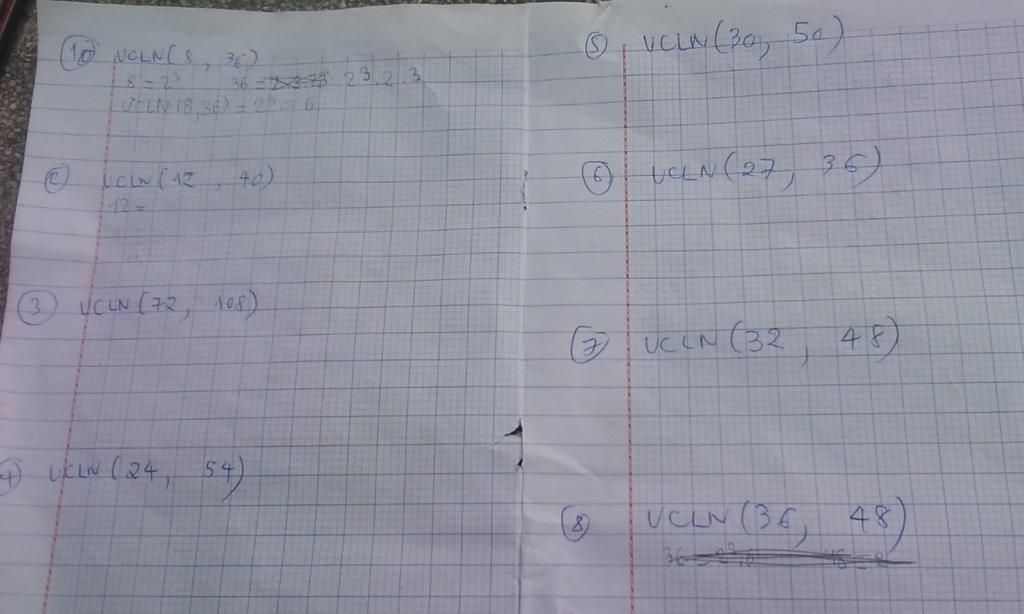 ① ƯCLN(8, 36)
8 = 2³ 36 = 2³.2.3
ƯCLN(8,36) = 2³ = 6
② ƯCLN(12, 40)
12 =
③ ƯCLN(72, 108)
④ ƯCLN(24, 54)
⑤ ƯCLN(30, 50)
⑥ ƯCLN(27, 36)
⑦ ƯCLN(32, 48)
⑧ ƯCLN(36, 48)